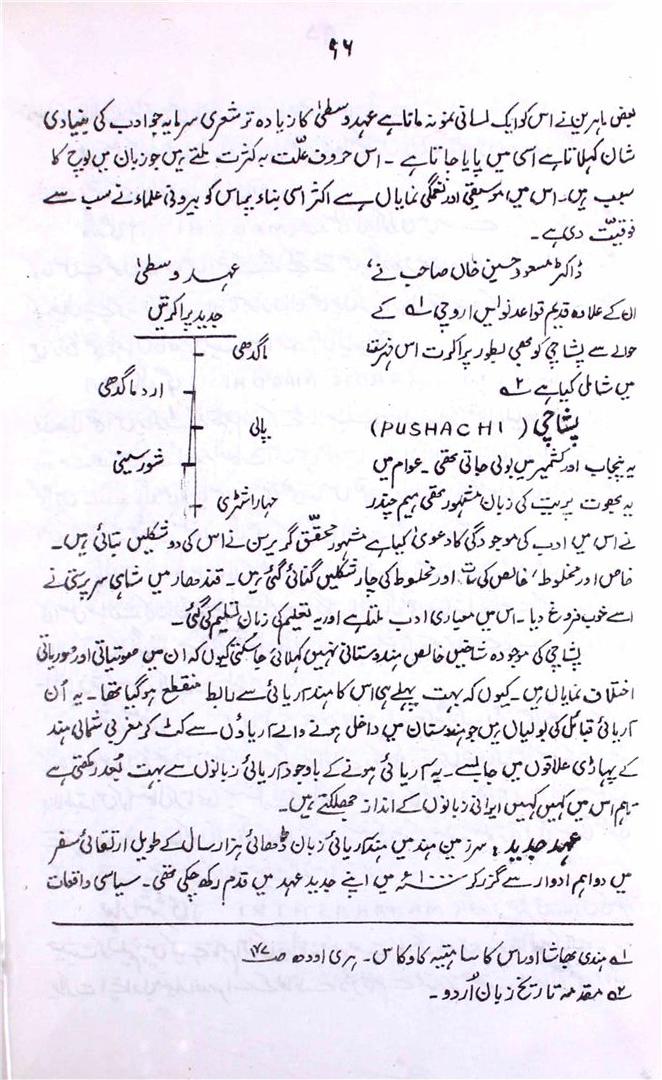 ۹۶
بعض ماہرین نے اس کو ایک لسانی نمونہ مانا ہے عہد وسطیٰ کا زیادہ تر شعری سرمایہ جو ادب کی بنیادی
شان کہلاتا ہے اسی میں پایا جاتا ہے ۔ اس حروف علّت بہ کثرت ملتے ہیں جو زبان میں لوچ کا
سبب ہیں۔ اس میں موسیقی اور نغمگی نمایاں ہے اکثر اسی بناء پر اس کو بیرونی علماء نے سب سے
فوقیت دی ہے ۔
ڈاکٹر مسعود حسین خاں صاحب نے
ان کے علاوہ قدیم قواعد نویس اروچی ۱ے کے
حوالے سے پشاچی کو بھی بطور پراکرت اس فہرست
میں شامل کیا ہے ۲ے
پشاچی (PUSHACHI)
یہ پنجاب اور کشمیر میں بولی جاتی تھی ۔ عوام میں
یہ بھوت پریت کی زبان مشہور تھی ہیم چندر
عہد وسطیٰ
جدید پراکرتیں
ماگدھی
اردماگدھی
پالی
شورسینی
مہاراشٹری
نے اس میں ادب کی موجودگی کا دعویٰ کیا ہے مشہور محقّق گریرسن نے اس کی دو شکلیں بتائی ہیں ۔
خاص اور مخلوط، خالص کی سات اور مخلوط کی چار شکلیں گنائی گئی ہیں ۔ قندھار میں شاہی سرپرستی نے
اسے خوب فروغ دیا ۔ اس میں معیاری ادب ملتا ہے اور یہ تعلیم کی زبان تسلیم کی گئی ۔
پشاچی کی موجودہ شاخیں خالص ہندوستانی نہیں کہلائی جا سکتی کیوں کہ ان میں صوتیاتی اور صوریاتی
اختلاف نمایاں ہیں ۔ کیوں کہ بہت پہلے ہی اس کا ہند آریائی سے رابطہ منقطع ہو گیا تھا ۔ یہ اُن
آریائی قبائل کی بولیاں ہیں جو ہندوستان میں داخل ہونے والے آریاؤں سے کٹ کر مغربی شمالی ہند
کے پہاڑی علاقوں میں جا بسے ۔ یہ آریائی ہونے کے باوجود آریائی زبانوں سے بہت بُعد رکھتی ہے
تاہم اس میں کہیں کہیں ایرانی زبانوں کے انداز جھلکتے ہیں ۔
عہد جدید : سرزمین ہند میں ہند آریائی زبان ڈھائی ہزار سال کے طویل ارتقائی سفر
میں دو اہم ادوار سے گزر کر ۱۰۰۰ء میں اپنے جدید عہد میں قدم رکھ چکی تھی ۔ سیاسی واقعات
۱ے ہندی بھاشا اور اس کا ساہتیہ کا وکاس ۔ ہری اودھ صـ
۲ے مقدمہ تاریخ زبان اُردو ۔